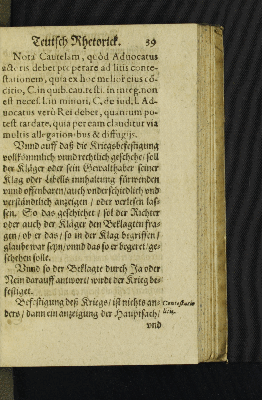 Teutsch Rhetorick. 39
Nota Cautelam, quòd Advocatus
actoris debet properare ad litis conte-
stationem, quia ex hoc melior eius cõ-
ditio, C. in quib. cau. resti. in integ. non
est neces. l. in minori, C. de iud. l. Ad-
vocatus verò Rei debet, quantum pu-
test tardare, quia per eam clauditur via
multis allegationibus & diffugijs.
Vnnd auff daß die Kriegsbefestigung
vollkömmlich vnnd rechtlich geschehe/ soll
der Kläger oder sein Gewalthaber seiner
Klag oder Libells innhaltung fürwenden
vnnd offenbaren/ auch vnderschiedlich vnd
verständtlich anzeigen / oder verlesen las-
sen. So das geschichet / sol der Richter
oder auch der Kläger den Beklagten fra-
gen/ ob er das / so in der Klag begriffen/
glaube war seyn/ vnnd das so er begeret/ ge-
schehen solle.
Vnnd so der Beklagte durch Ja oder
Nein darauff antwort/ wirdt der Krieg be-
festiget.
Befestigung deß Kriegs/ ist nichts an-
ders / dann ein anzeigung der Hauptsach/
vnd
Contestatio
litis.